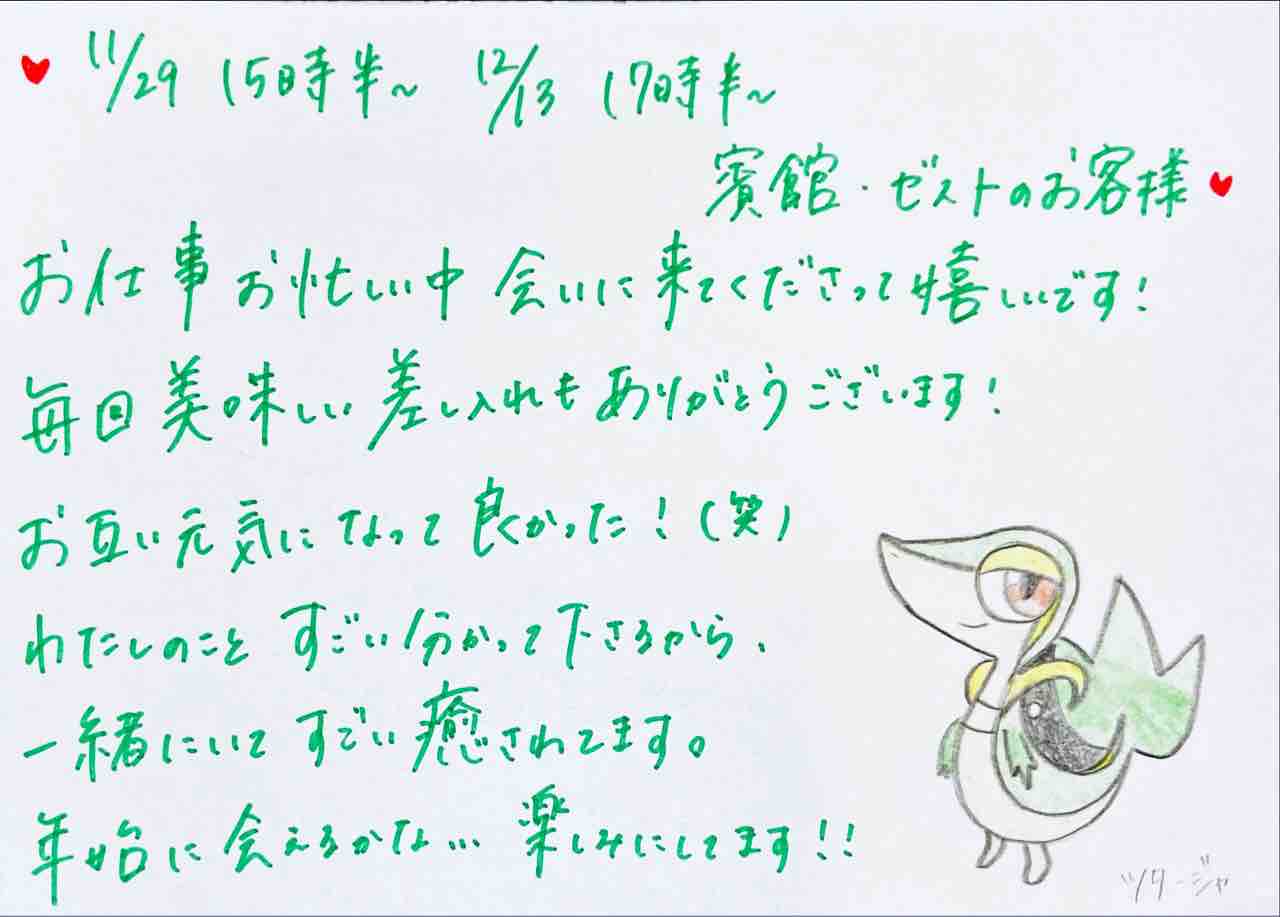 11/29 15時半~ 12/13 17時半~
賓館・ゼストのお客様
お仕事お忙しい中 会いに来てくださって嬉しいです!
毎回美味しい差し入れもありがとうございます!
お互い元気になって良かった!(笑)
わたしのこと すごい分かって下さるから、
一緒にいて すごい癒されてます。
年始に会えるかな… 楽しみにしてます!!
ツタージャ